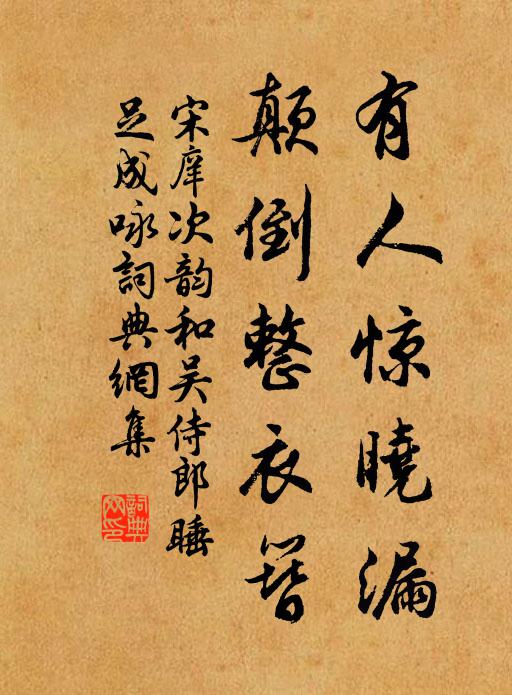 有人惊曉漏
顛倒整衣簪
宋庠次韵和吴侍郎睡
足成咏詞典網集
詞典
网印